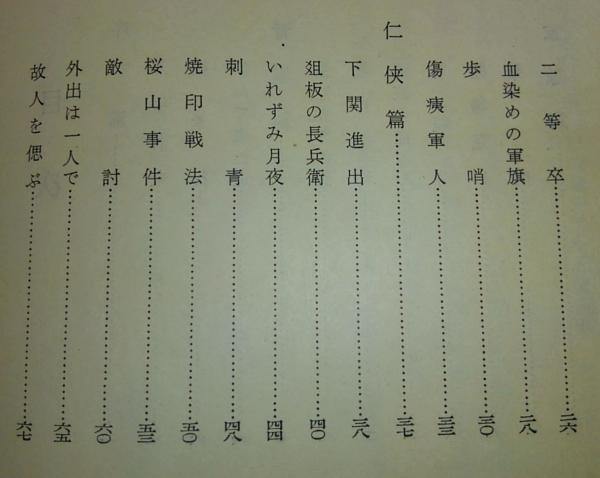 二等卒……二六
血染めの軍旗……二八
歩哨……三〇
傷痍軍人……三三
仁侠篇……三七
下関進出……三八
俎板の長兵衛……四〇
いれずみ月夜……四四
刺青……四八
焼印戦法……五〇
桜山事件……五三
敵討……六〇
外出は一人で……六五
故人を偲ぶ……六七